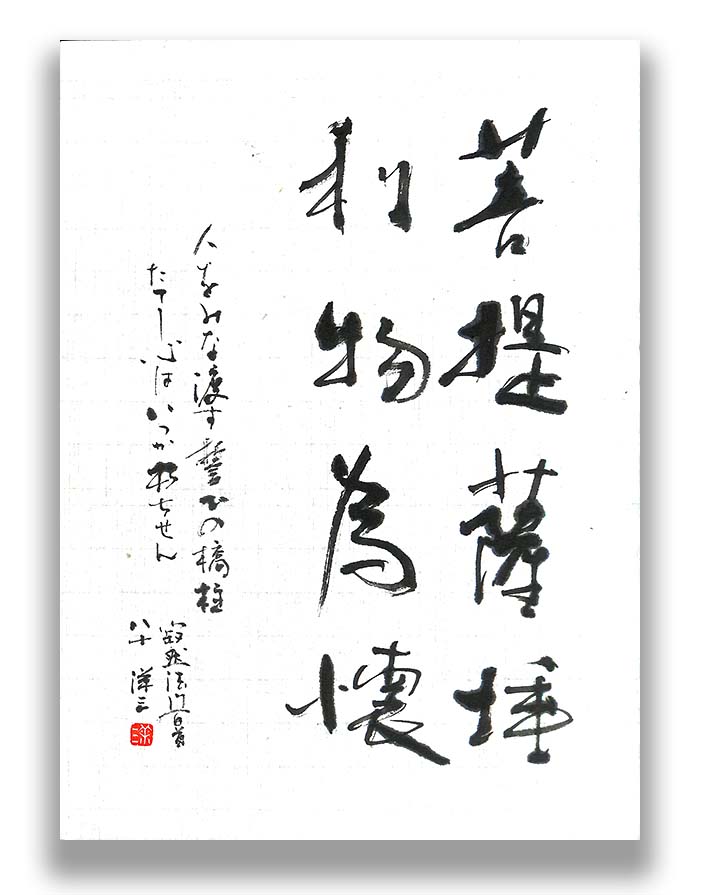 菩提薩埵
利物為懐
人をみな渡す誓ひの橋柱
たてし心はいつか朽ちせん
寂然法門百首
八十 洋三